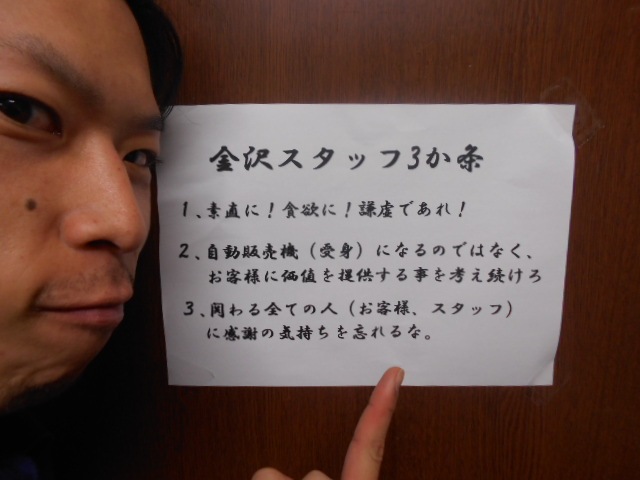 金沢スタッフ3か条
1、素直に!貪欲に!謙虚であれ!
2、自動販売機(受身)になるのではなく、
お客様に価値を提供する事を考え続けろ
3、関わる全ての人(お客様、スタッフ)
に感謝の気持ちを忘れるな。